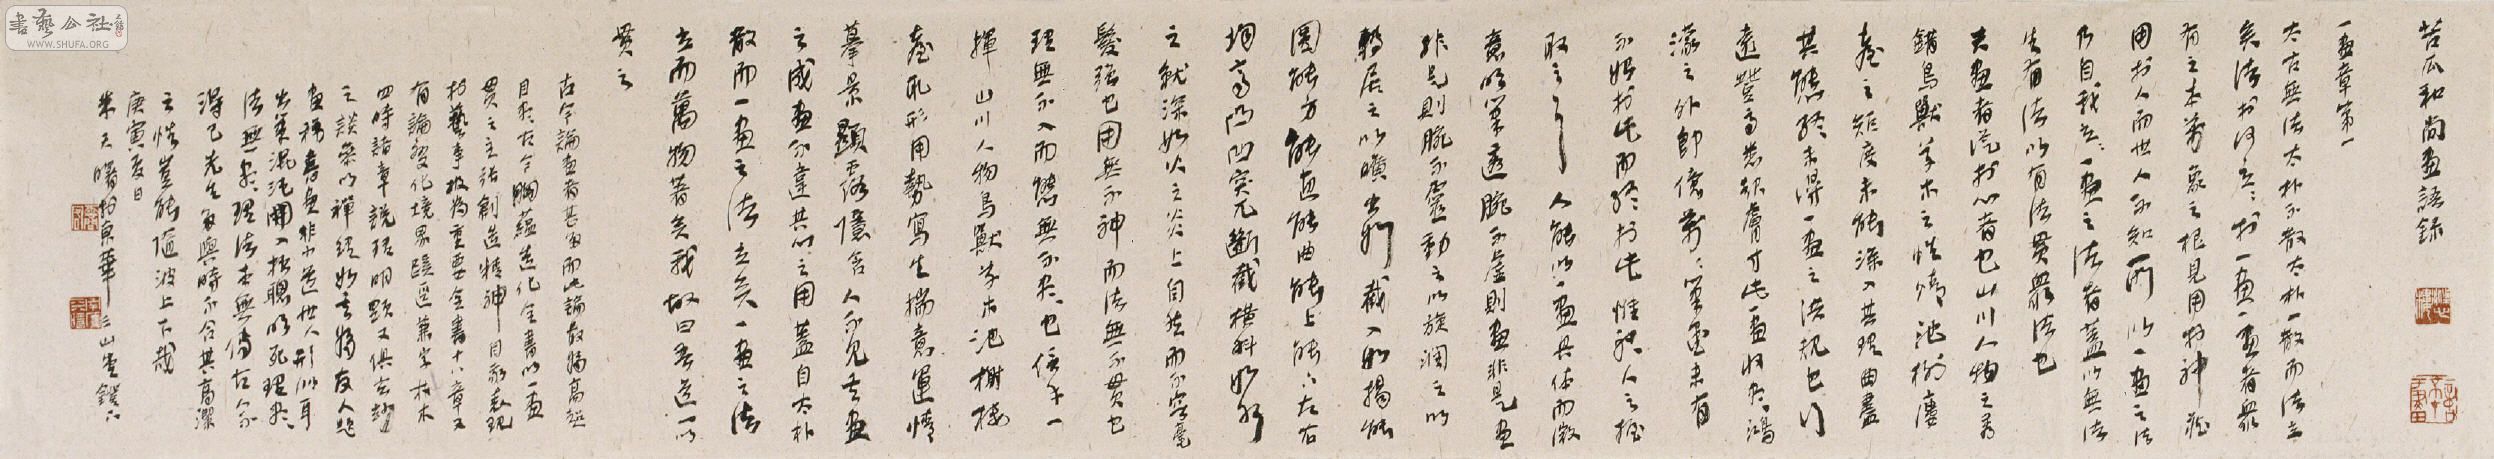 苦瓜和尚画語録
一画章第一
太古無法太朴不散太朴一散而法立
矣法於何立立於一画一画者衆
有之本萬象之根見用於神藏
用於人而世人不知所以一画之法
乃自我立立一画之法者蓋以無法
生有法以有法貫衆法也
夫画者從於心者也山川人物之秀
錯鳥獸草木之性情池榭樓
臺之矩度未能深入其理曲盡
其態終未得一画之洪規也行
遠登高悉起膚寸此一画收盡鴻
濛之外即億萬萬筆墨未有
不始於此而終於此惟聽人之握
取之耳人能以一画具体而微
意明筆透腕不虚則画非是画
非是則腕不靈動之以旋潤之以
轉居之以曠出如截入如揭能
圓能方能直能曲能上能下左右
均齊凸凹突兀斷截横斜如水
之就深如火之炎上自然而不容毫
髮强也用無不神而法無不貫也
理無不入而態無不盡也信手一
揮山川人物鳥獸草木池榭樓
臺取形用勢寫生揣意運情
摹景顯露隱含人不見其画
之成画不違其心之用蓋自太朴
散而一画之法立矣一画之法
立而萬物著矣我故曰吾道一以
貫之
古今論画者甚多而此論最為高超
目盡古今胸蘊造化全書以一画
貫之主張創造精神自家表現
於藝事极為重要全書十八章又
有論變化境界蹊徑兼字林木
四時諸章説理明顯又俱玄妙
之談參以禪理如其為友人題
画稱善画
出筆混沌開入拙聰明死理盡
法無盡理法本無傳古人不
得已先生
之性豈能隨波上下哉
庚寅夏日
朱天曙於京華
書藝公社
WWW.SHUFA.ORG